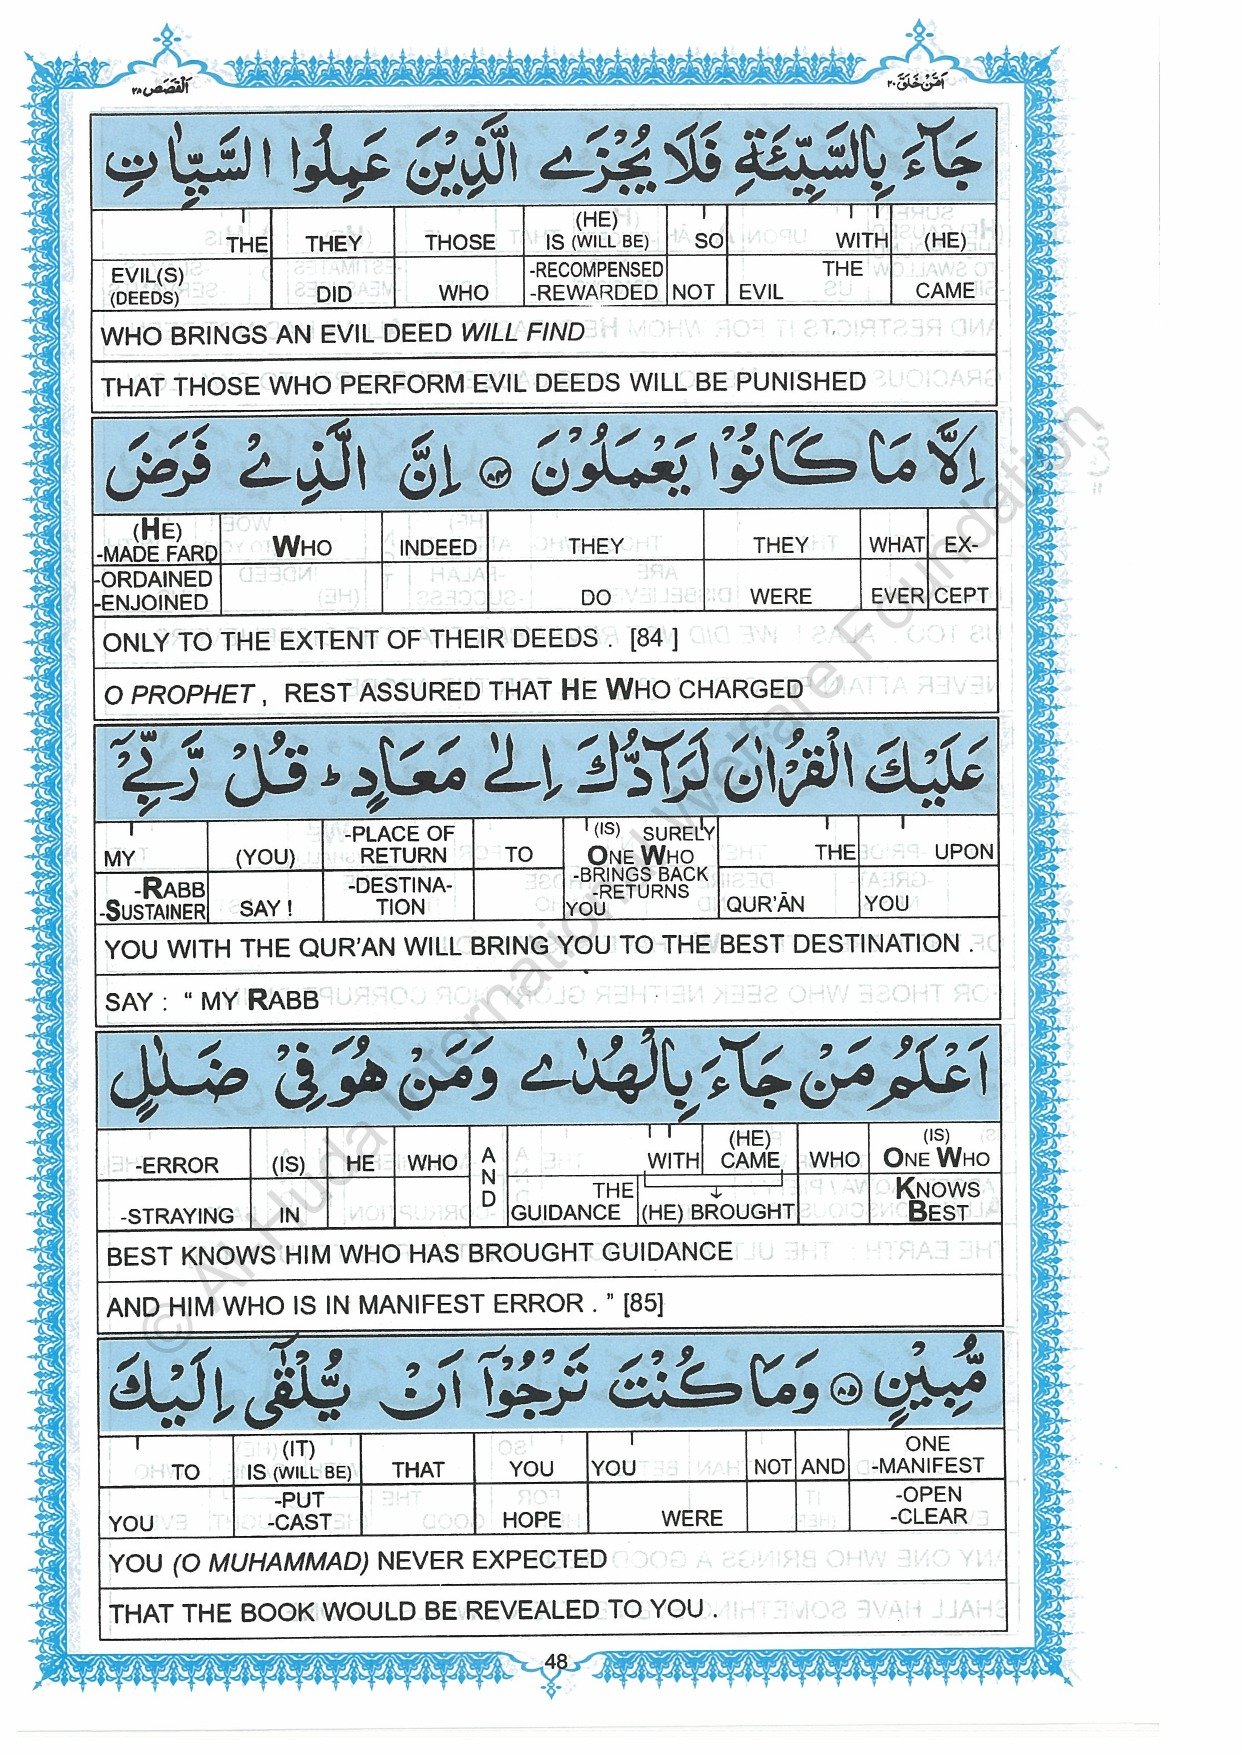 القصص ٢٨
امن خلق ٢٠
جَآءَ بِالسَّيِّئَةِ فَلَا يُجْزَى الَّذِيْنَ عَمِلُوا السَّيِّاٰتِ
THE THEY THOSE (HE) IS (WILL BE) SO WITH (HE)
EVIL(S) (DEEDS) DID WHO -RECOMPENSED -REWARDED NOT EVIL THE CAME
WHO BRINGS AN EVIL DEED WILL FIND
THAT THOSE WHO PERFORM EVIL DEEDS WILL BE PUNISHED
اِلَّا مَا كَانُوْا يَعْمَلُوْنَ ٨٤ اِنَّ الَّذِيْ فَرَضَ
(HE) -MADE FARD WHO INDEED THEY THEY WHAT EX-
-ORDAINED -ENJOINED DO WERE EVER CEPT
ONLY TO THE EXTENT OF THEIR DEEDS . [84 ]
O PROPHET , REST ASSURED THAT HE WHO CHARGED
عَلَيْكَ الْقُرْاٰنَ لَرَآدُّكَ اِلٰى مَعَادٍ ؕ قُلْ رَّبِّيْٓ
MY (YOU) -PLACE OF RETURN TO (IS) SURELY ONE WHO THE UPON
-RABB -SUSTAINER SAY ! -DESTINA- TION -BRINGS BACK -RETURNS YOU QUR'ĀN YOU
YOU WITH THE QUR'AN WILL BRING YOU TO THE BEST DESTINATION .
SAY : “ MY RABB
اَعْلَمُ مَنْ جَآءَ بِالْهُدٰى وَمَنْ هُوَ فِيْ ضَلٰلٍ
-ERROR (IS) HE WHO AND WITH (HE) CAME WHO (IS) ONE WHO
-STRAYING IN THE GUIDANCE (HE) BROUGHT KNOWS BEST
BEST KNOWS HIM WHO HAS BROUGHT GUIDANCE
AND HIM WHO IS IN MANIFEST ERROR . ” [85]
مُّبِيْنٍ ٨٥ وَمَا كُنْتَ تَرْجُوْٓا اَنْ يُّلْقٰٓى اِلَيْكَ
TO (IT) IS (WILL BE) THAT YOU YOU NOT AND ONE -MANIFEST
YOU -PUT -CAST HOPE WERE -OPEN -CLEAR
YOU (O MUHAMMAD) NEVER EXPECTED
THAT THE BOOK WOULD BE REVEALED TO YOU .
48
© Al-Huda International Welfare Foundation